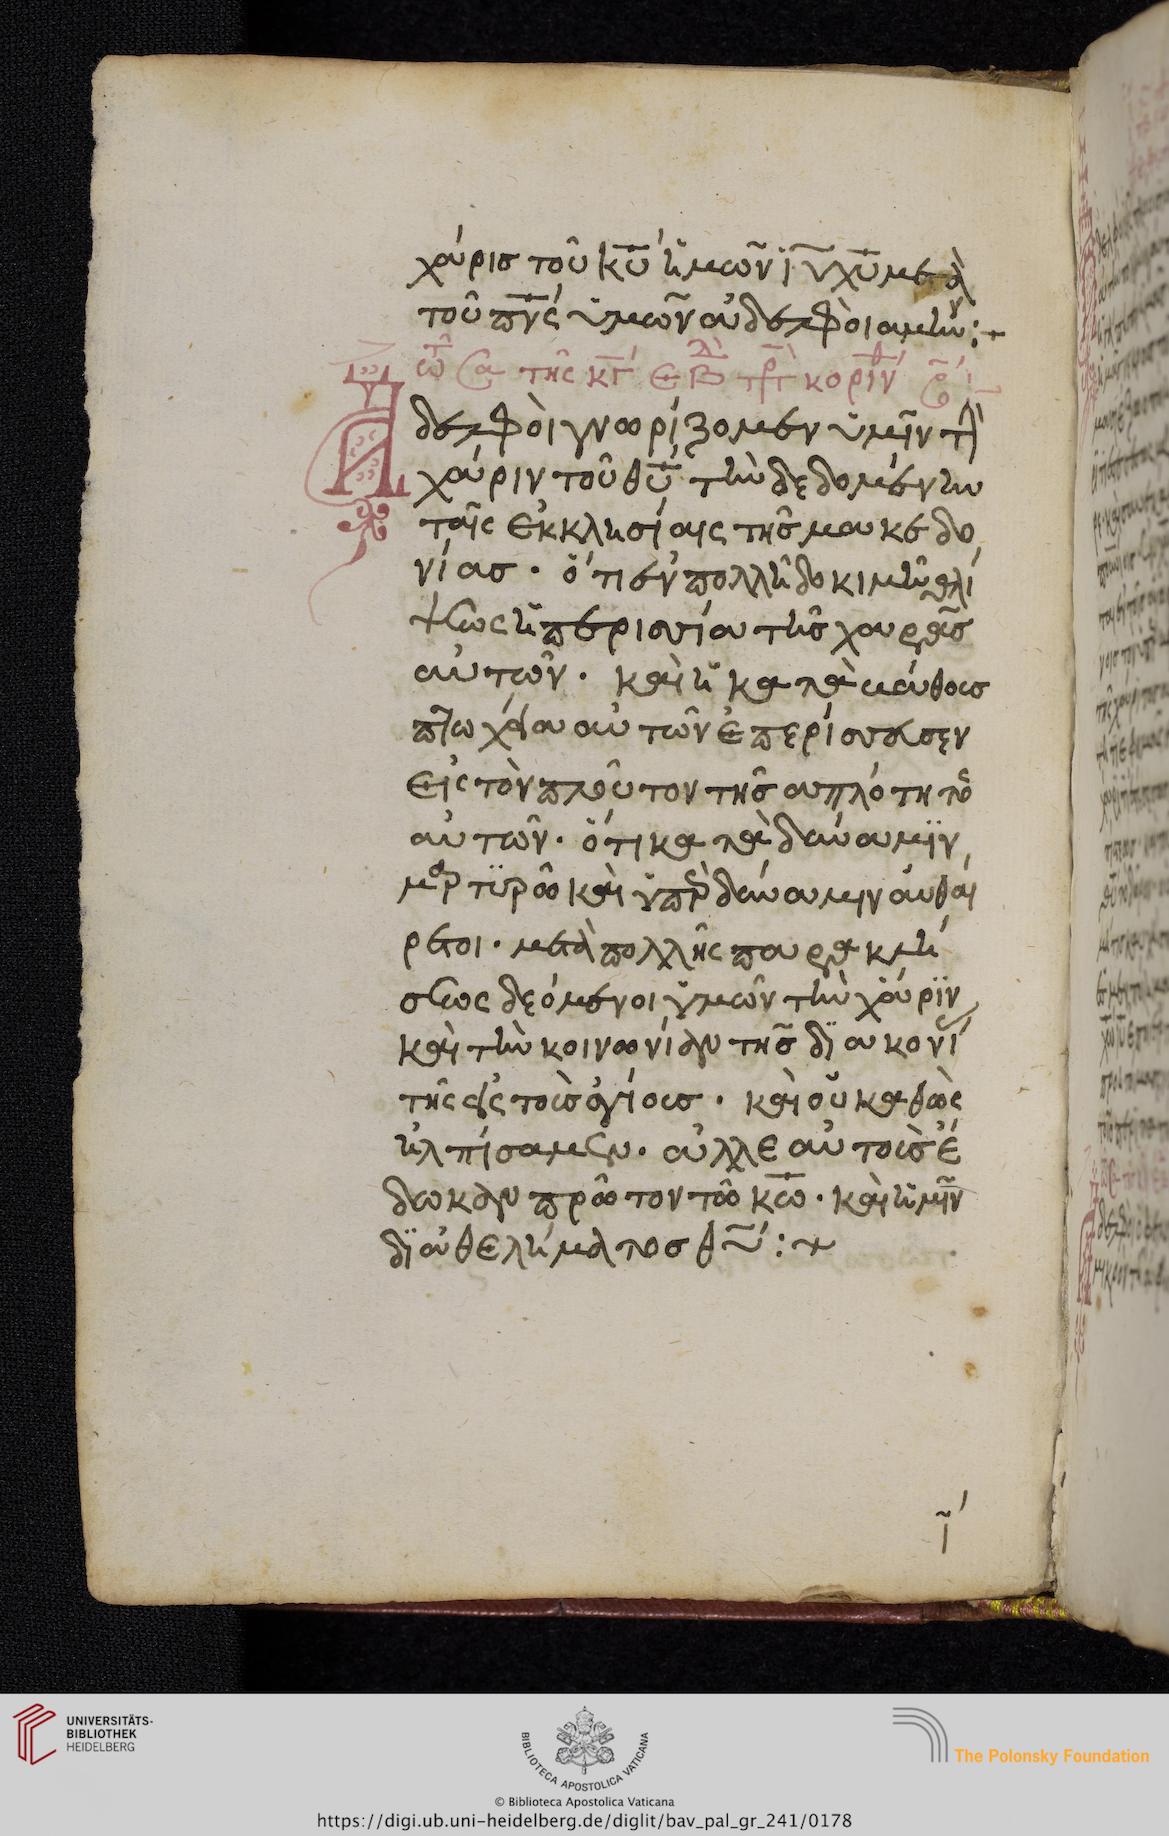 χάρις τοῦ κῡ ἡμῶν ῑῡ χῡ μετὰ
τοῦ πν̅ς ὑμῶν ἀδελφοὶ ἀμήν:+
τῆς κγ ΕΒ πρ κοριν
Ἀδελφοὶ γνωρίζομεν ὑμῖν τὴν
χάριν τοῦ θῡ τὴν δεδομένην
ταῖς ἐκκλησίαις τῆς μακεδο
νίας· ὅτι ἐν πολλῆ δοκιμῆ θλί
ψεως ἡ περισσία τῆς χαρᾶς
αὐτῶν· καὶ ἡ κατὰ βάθους
πτωχεία αὐτῶν ἐπερίσσευσεν
εἰς τὸν πλοῦτον τῆς ἁπλότητος
αὐτῶν· ὅτι κατὰ δύναμϊν
μαρτϋρῶ καὶ ὑπὲρ δύναμιν αὐθαί
ρετοι· μετὰ πολλῆς παρακλή
σεως δεόμενοι ὑμῶν τὴν χάρϊν
καὶ τὴν κοινωνίαν τῆς δϊακονί
τῆς εἰς τοὺς ἁγίους· καὶ οὐ καθὼς
ἠλπίσαμεν· ἀλλ ἑαυτοὺς ἔ
δωκαν πρῶτον τῶ κ̅ω̅· καὶ ἡμῖν
δϊὰ θελήματος θῡ:+
ῑ
UNIVERSITÄTS-
BIBLIOTHEK
HEIDELBERG
BIBLIOTECA APOSTOLICA VATICANA
The Polonsky Foundation
© Biblioteca Apostolica Vaticana
https://digi.ub.uni-heidelberg.de/diglit/bav_pal_gr_241/0178